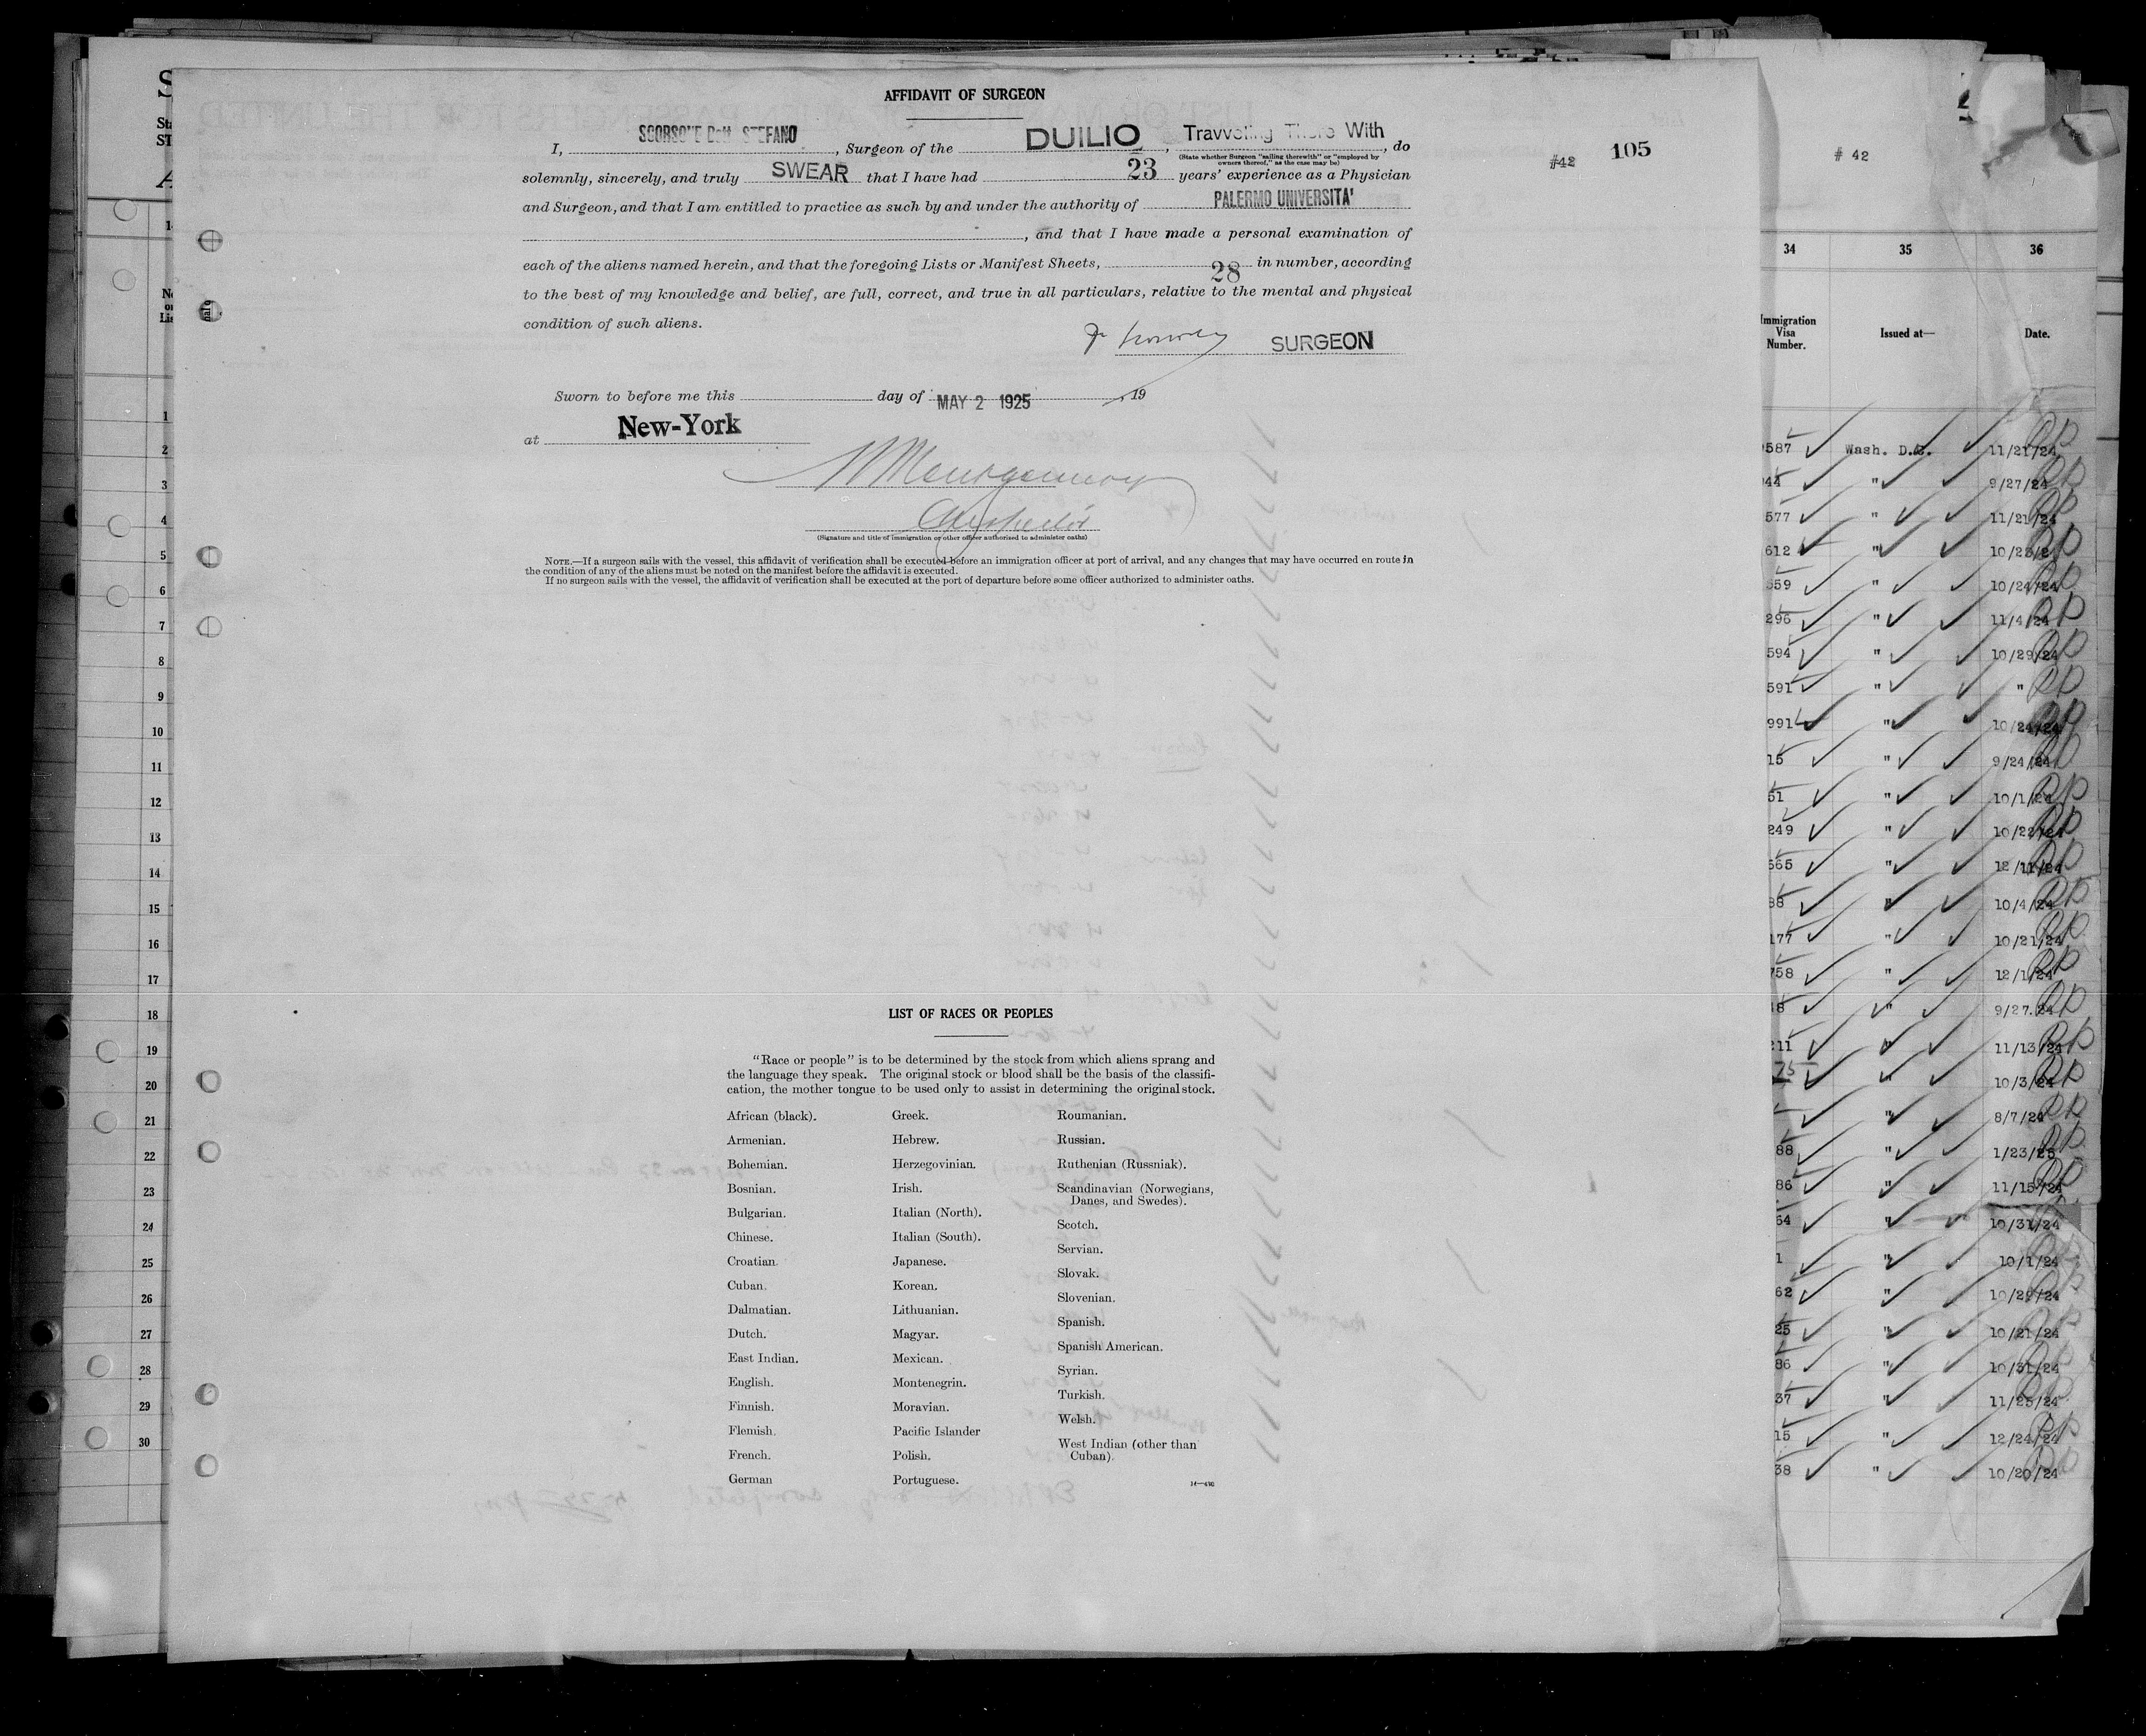 AFFIDAVIT OF SURGEON
I, SCORSONE Dott STEFANO, Surgeon of the DUILIO, Travveling There With, do
(State whether Surgeon "sailing therewith" or "employed by
owners thereof," as the case may be)
#42
105
# 42
solemnly, sincerely, and truly SWEAR that I have had 23 years' experience as a Physician
and Surgeon, and that I am entitled to practice as such by and under the authority of PALERMO UNIVERSITA'
, and that I have made a personal examination of
each of the aliens named herein, and that the foregoing Lists or Manifest Sheets, 28 in number, according
to the best of my knowledge and belief, are full, correct, and true in all particulars, relative to the mental and physical
condition of such aliens.
SURGEON
Sworn to before me this day of MAY 2 1925, 19
at New-York
Montgomery
Inspector
(Signature and title of immigration or other officer authorized to administer oaths)
NOTE.—If a surgeon sails with the vessel, this affidavit of verification shall be executed before an immigration officer at port of arrival, and any changes that may have occurred en route in
the condition of any of the aliens must be noted on the manifest before the affidavit is executed.
If no surgeon sails with the vessel, the affidavit of verification shall be executed at the port of departure before some officer authorized to administer oaths.
LIST OF RACES OR PEOPLES
"Race or people" is to be determined by the stock from which aliens sprang and
the language they speak. The original stock or blood shall be the basis of the classifi-
cation, the mother tongue to be used only to assist in determining the original stock.
African (black).
Armenian.
Bohemian.
Bosnian.
Bulgarian.
Chinese.
Croatian.
Cuban.
Dalmatian.
Dutch.
East Indian.
English.
Finnish.
Flemish.
French.
German
Greek.
Hebrew.
Herzegovinian.
Irish.
Italian (North).
Italian (South).
Japanese.
Korean.
Lithuanian.
Magyar.
Mexican.
Montenegrin.
Moravian.
Pacific Islander
Polish.
Portuguese.
Roumanian.
Russian.
Ruthenian (Russniak).
Scandinavian (Norwegians,
Danes, and Swedes).
Scotch.
Servian.
Slovak.
Slovenian.
Spanish.
Spanish American.
Syrian.
Turkish.
Welsh.
West Indian (other than
Cuban).
1
2
3
4
5
6
7
8
9
10
11
12
13
14
15
16
17
18
19
20
21
22
23
24
25
26
27
28
29
30
34 35 36
Immigration
Visa
Number.
Issued at—
Date.
587 Wash. D.C. 11/21/24
44 " 9/27/24
577 " 11/21/24
612 " 10/23/2
559 " 10/24/24
296 " 11/4/24
594 " 10/29/24
591 " "
991 " 10/24/24
15 " 9/24/24
51 " 10/1/24
249 " 10/22/24
565 " 12/11/24
38 " 10/4/24
177 " 10/21/24
758 " 12/1/24
18 " 9/27.24
211 " 11/13/24
75 " 10/3/24
" 8/7/24
88 " 1/23/25
86 " 11/15/24
64 " 10/31/24
1 " 10/1/24
62 " 10/29/24
25 " 10/21/24
86 " 10/31/24
37 " 11/25/24
15 " 12/24/24
38 " 10/20/24